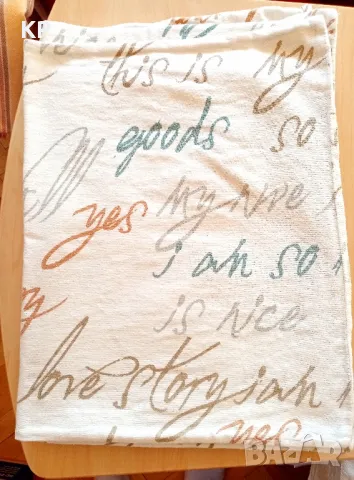 this is my
goods so
yes my nice
i am so
is nice
love story i am
yes
BAZAR